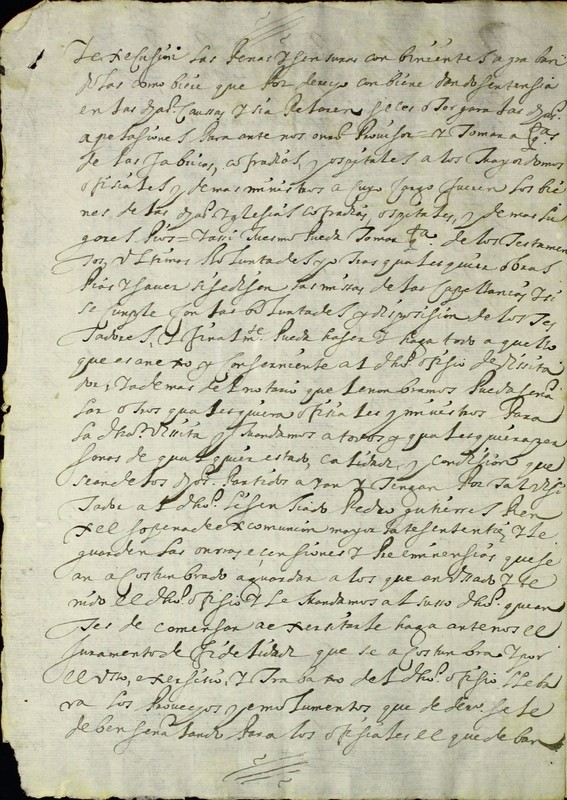 de execusion Las Penas y sensuras con binientes agra ban
dolas como biere que Por derecho conbiene dando sentensia
en las dhas. Caussas y si a Pelaren se les otorgara las dhas.
apelasiones Para ante nos o nro. Prouisor = y Tomara qtas
de las fabricas, cofradias, y ospitales a los Mayordomos
ofisiales y demas ministros a cuyo cargo fueren Los bie
nes de las dhas. Yglesias cofradias, ospitales, y demas Lu
gares Pios = Y assi Mesmo Pueda Tomar qta. de los Testamen
tos, Vltimas Boluntades y otras qualesquiera obras
Pias y sauer si se disen las missas de las Capellanias y si
se cumple con las boluntades y dispossision de los Tes
tadores, y finalmte. Pueda haser y haga todo aquello
que es anexo y conserniente al dho. ofisio de Vissita
dor, Y ademas del notario que le nombramos Pueda seña
lar otros qualesquiera ofisiales y ministros Para
La dha. Vissita y Mandamos a todos y qualesquiera per
sonas de qualquier estado, calidad, y condision que
sean de los dhos. Partidos ayan y Tengan Por tal Vissi
tador al dho. Lisensiado Pedro gutierres
so pena de excomunion mayor latae sententie y le
guarden las onrras e censiones y Preeminensias que se
an acostunbrado a guardar a los que an Vssado y te
nido el dho. ofisio y Le Mandamos al suso dho. que an
tes de comensar a exersitarle haga ante nos el
Juramento de fidelidad que se acostunbra Y por
el Vso, exersisio, Y Trabaxo del dho. ofisio Lleba
ra Los Prouechos y emolumentos que de dro. se le
deben señalando Para los ofisiales el que deban